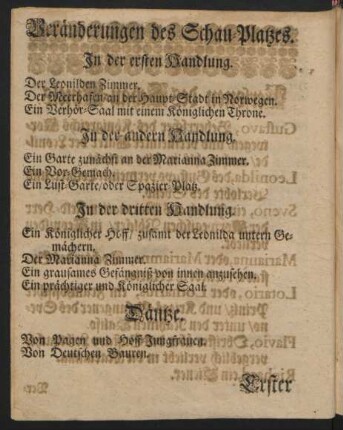 Veränderungen des Schau-Platzes.
In der ersten Handlung.
Der Leonilden Zimmer.
Der Meerhafen an der Haupt-Stadt in Norwegen.
Ein Verhör-Saal mit einem Königlichen Throne.
In der andern Handlung.
Ein Garte zunächst an der Marianna Zimmer.
Ein Vor-Gemach.
Ein Lust-Garte/oder Spazier-Platz.
In der dritten Handlung.
Ein Königlicher Hoff/ zusamt der Leonilda untern Ge-
mächern.
Der Marianna Zimmer.
Ein grausames Gefängniß von innen anzusehen.
Ein prächtiger und Königlicher Saal.
Däntze.
Von Pagen und Hoff-Jungfrauen.
Von Deutschen Bauren.
Erster